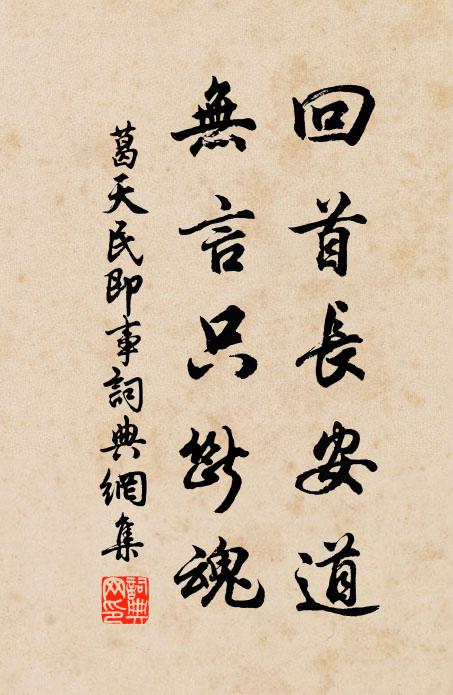 回首長安道
無言只斷魂
葛天民即事詞典網集
詞典